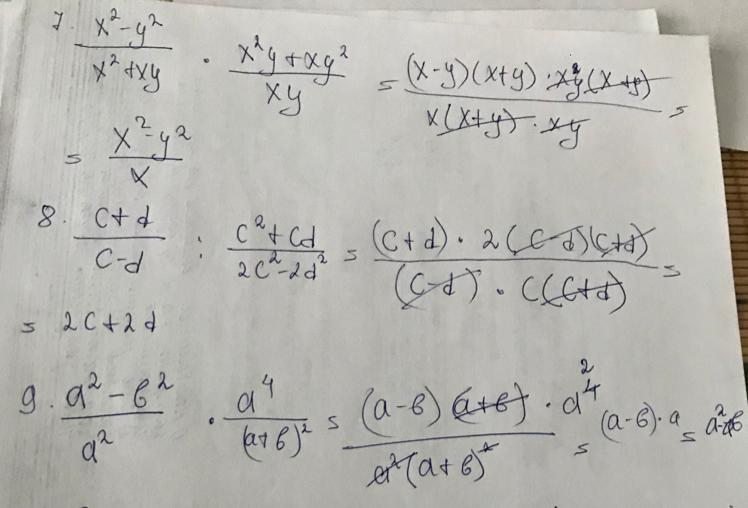 7. (x²-y²)/(x²+xy) · (x²y+xy²)/(xy) = ((x-y)(x+y)·xy(x+y))/(x(x+y)·xy) =
= (x²-y²)/x
8. (c+d)/(c-d) : (c²+cd)/(2c²-2d²) = ((c+d)·2(c-d)(c+d))/((c-d)·c(c+d)) =
= 2c+2d
9. (a²-в²)/a² · a⁴/(a+в)² = ((a-в)(a+в)·a⁴ ²)/(a²(a+в)²) = (a-в)·a =